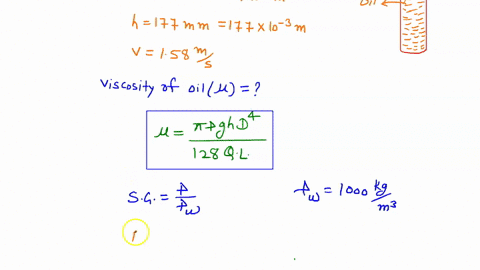 oil
h = 177 mm = 177 × 10⁻³ m
V = 1.58 m/s
Viscosity of oil (μ) = ?
μ = πρghD⁴ / 128 Q.L.
S.G. = ρ/ρw
ρw = 1000 kg/m³